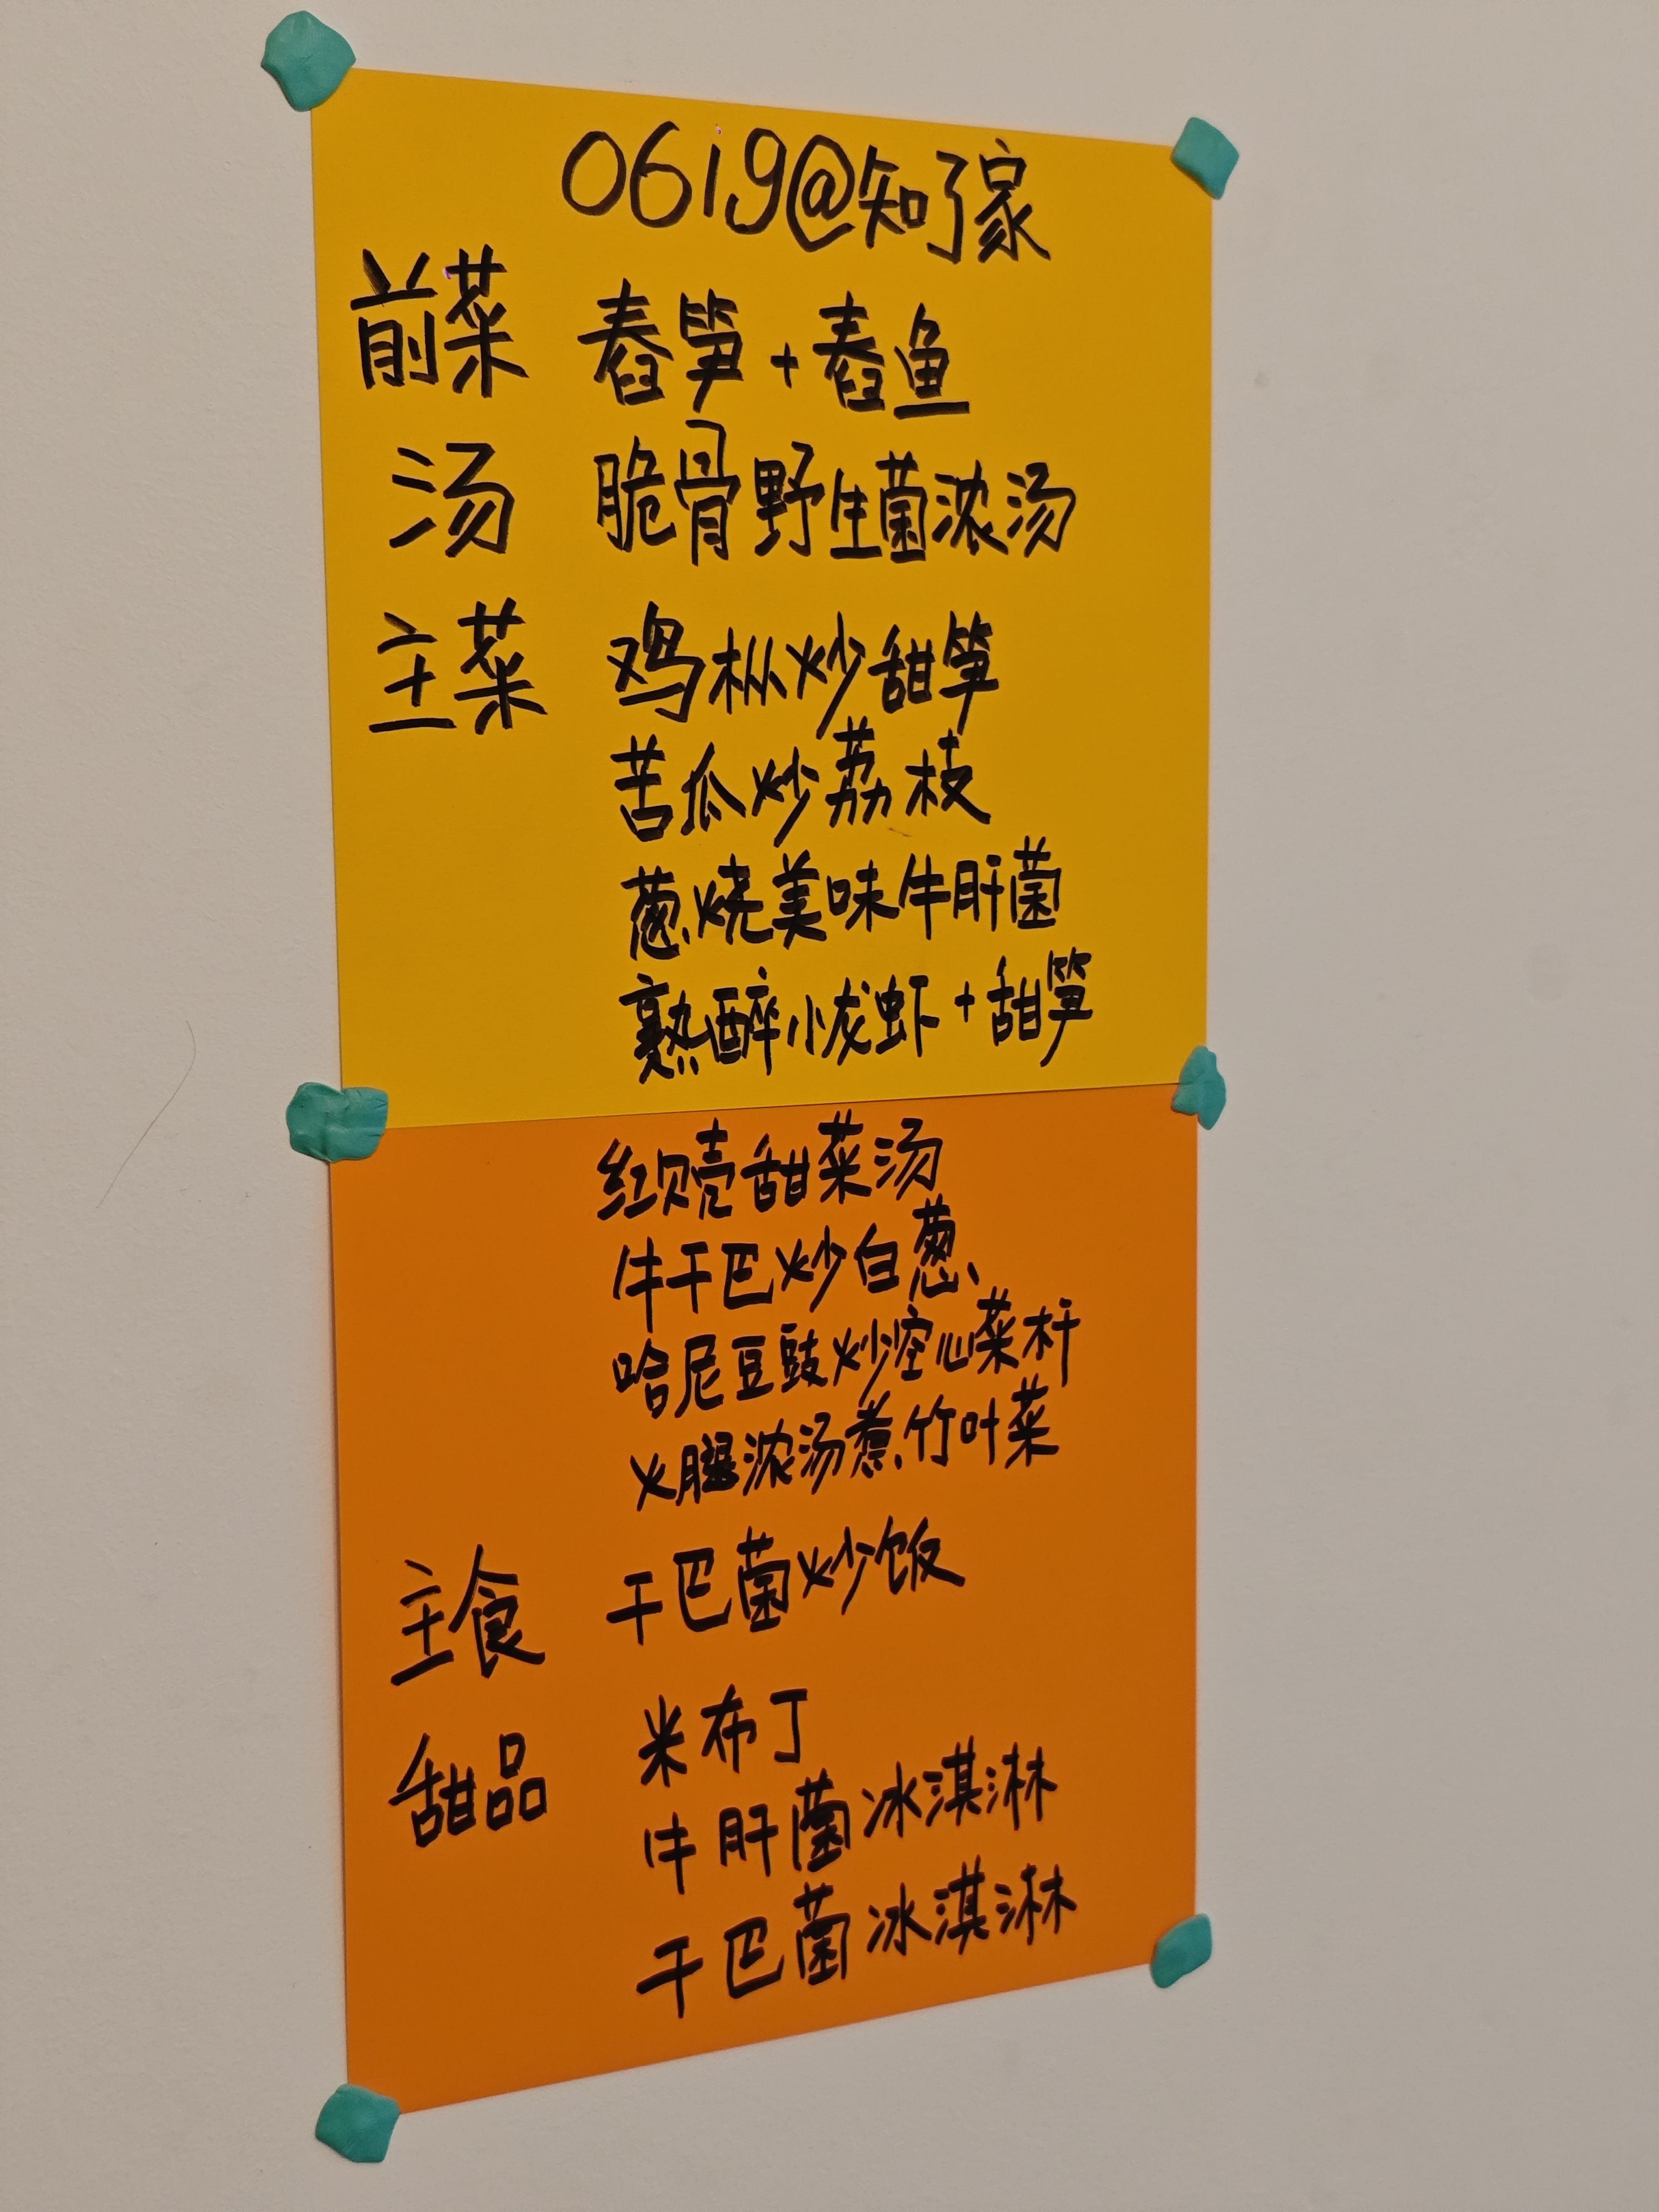 0619@知了家
前菜 舂笋+舂鱼
汤 脆骨野生菌浓汤
主菜 鸡枞炒甜笋
苦瓜炒荔枝
葱烧美味牛肝菌
熟醉小龙虾+甜笋
红贝壳甜菜汤
牛干巴炒白葱
哈尼豆豉炒空心菜杆
火腿浓汤煮竹叶菜
主食 干巴菌炒饭
甜品 米布丁
牛肝菌冰淇淋
干巴菌冰淇淋